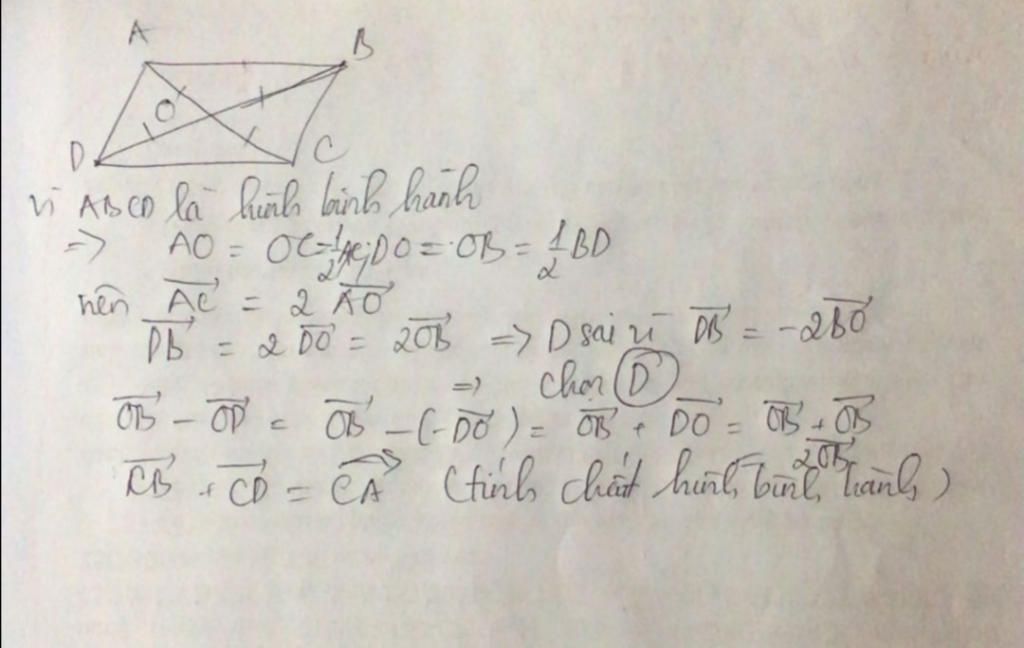 A
B
O
D
C
Vì ABCD là hình bình hành
=> AO = OC = 1/2 AC; DO = OB = 1/2 BD
nên \overrightarrow{AC} = 2 \overrightarrow{AO}
\overrightarrow{DB} = 2 \overrightarrow{DO} = 2\overrightarrow{OB} => D sai vì \overrightarrow{DB} = -2\overrightarrow{BO}
=> chọn D
\overrightarrow{OB} - \overrightarrow{OD} = \overrightarrow{OB} - (-\overrightarrow{DO}) = \overrightarrow{OB} + \overrightarrow{DO} = \overrightarrow{OB} + \overrightarrow{OB}
2\overrightarrow{OB}
\overrightarrow{CB} + \overrightarrow{CD} = \overrightarrow{CA} (tính chất hình bình hành)